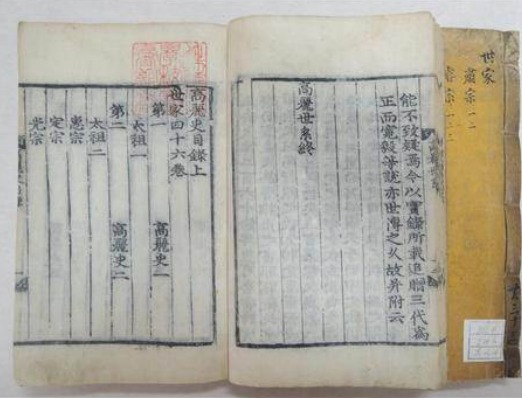 世家
肅宗一二
睿宗一二三
能不致疑焉今以實錄所載追贈三代爲
正而寬毅等說亦世傳之久故并附云
高麗世系終
高麗史目錄上
世家四十六卷
第一 高麗史一
太祖一
第二 高麗史二
太祖二
惠宗
定宗
光宗